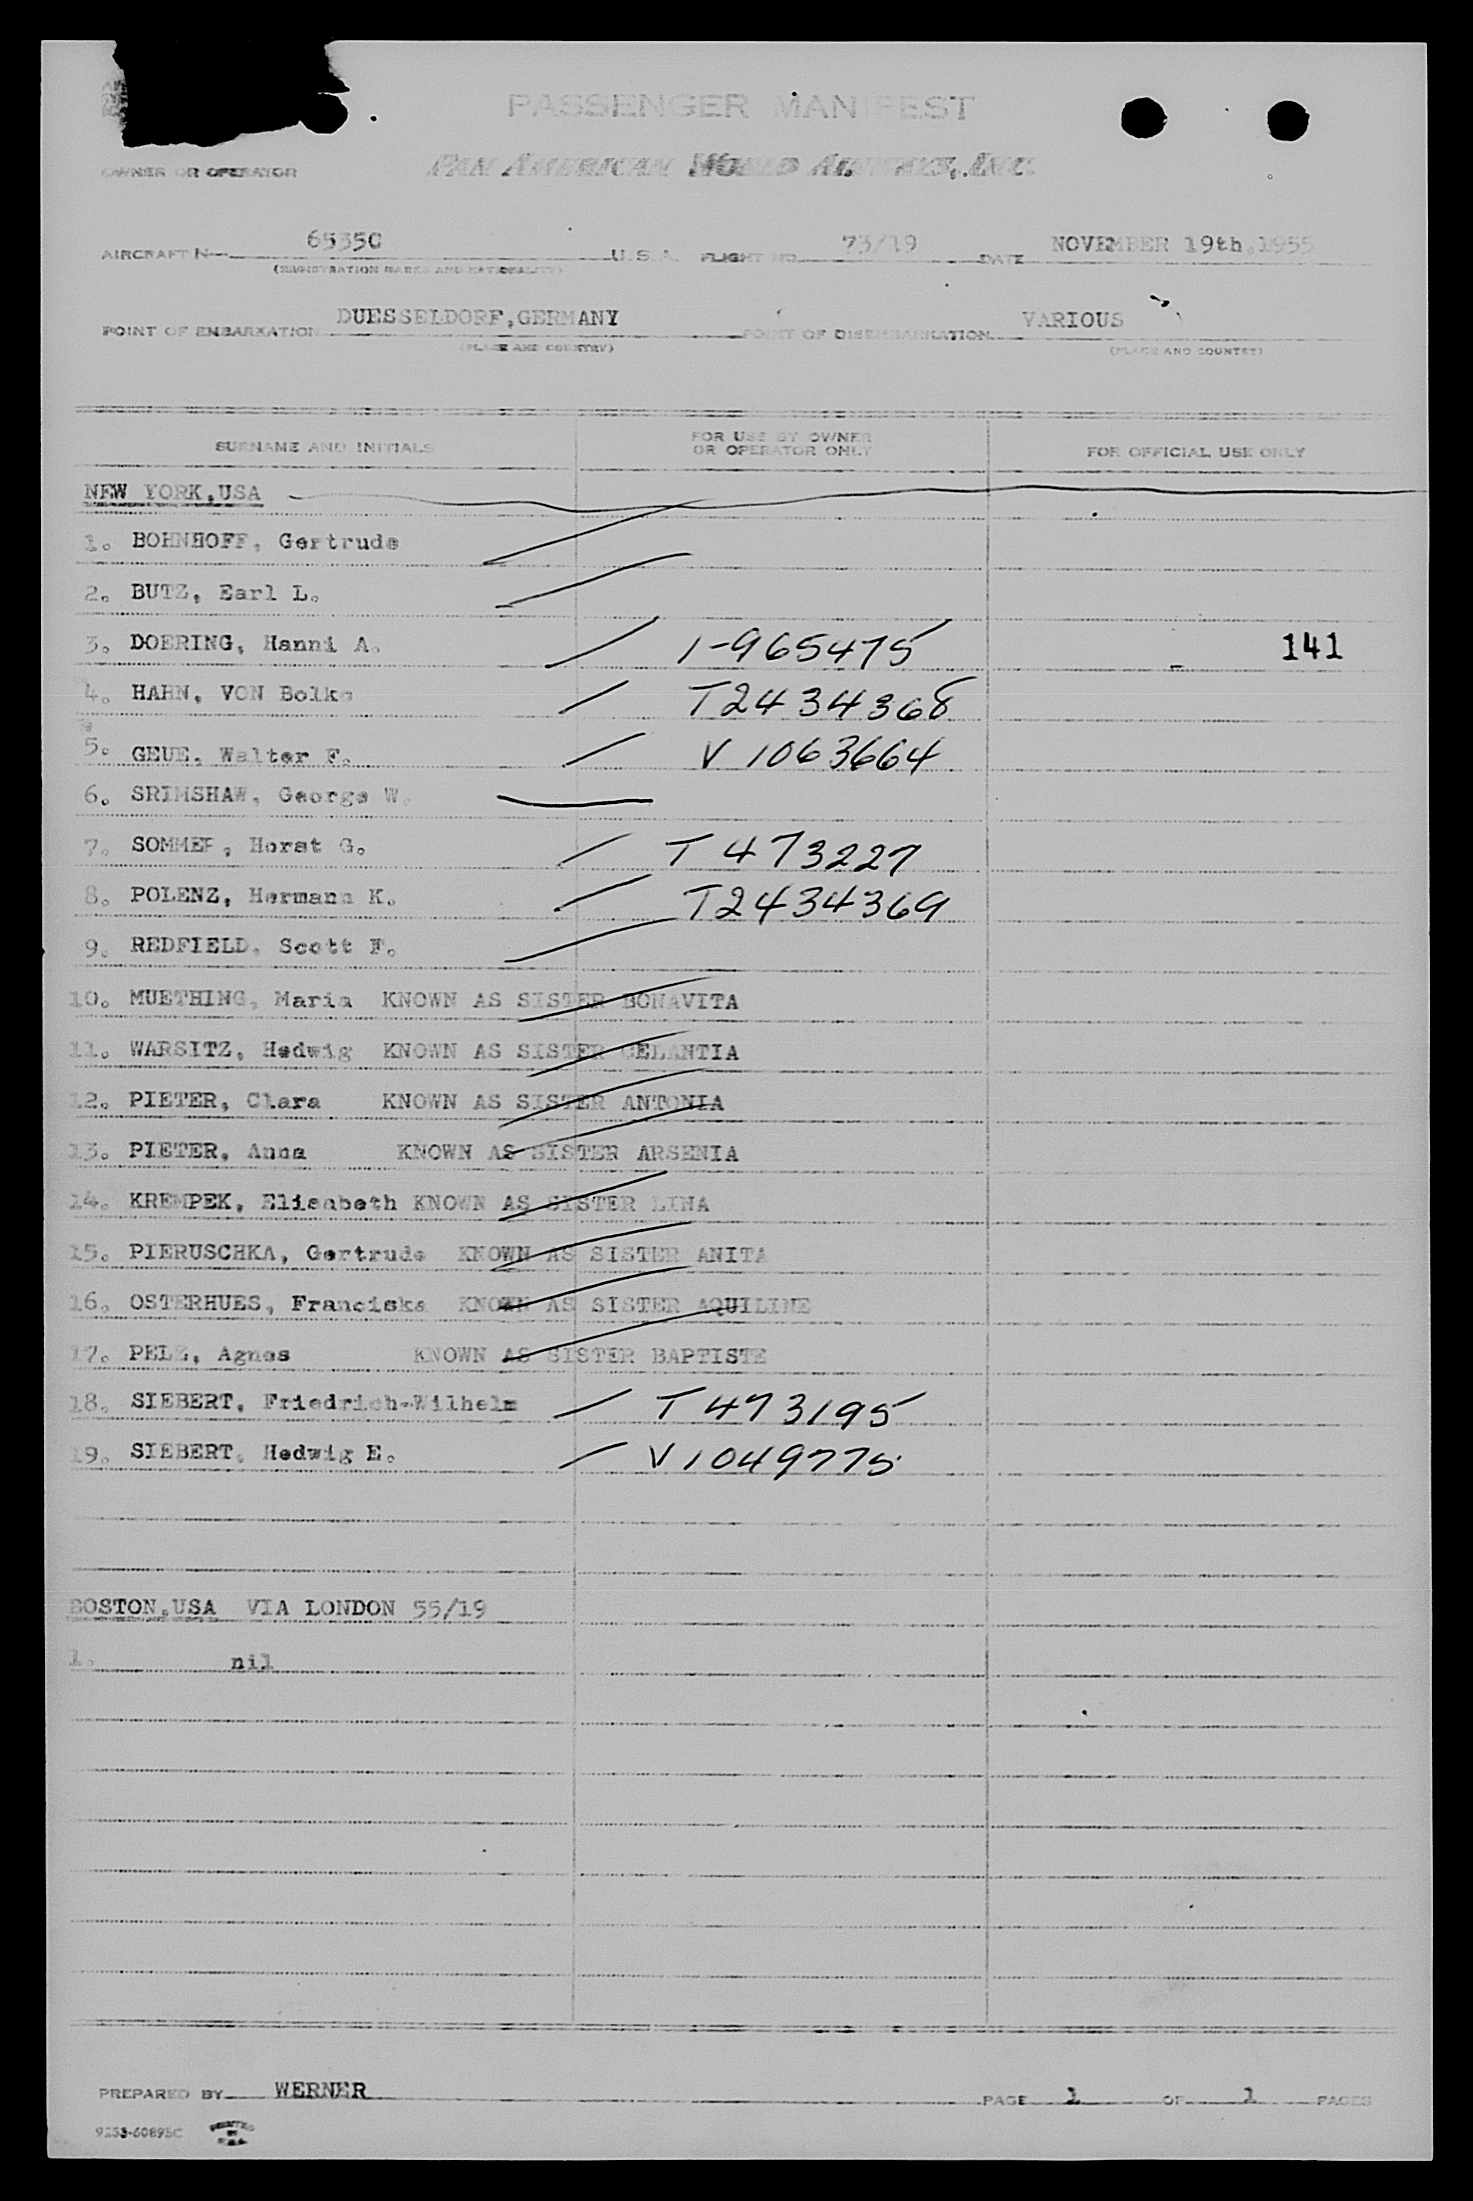 PASSENGER MANIFEST
OWNER OR OPERATOR PAN AMERICAN WORLD AIRWAYS, INC.
AIRCRAFT N 6535C U.S.A. FLIGHT NO. 73/19 DATE NOVEMBER 19th,1955
(REGISTRATION MARKS AND NATIONALITY)
POINT OF EMBARKATION DUESSELDORF,GERMANY POINT OF DISEMBARKATION VARIOUS
(PLACE AND COUNTRY) (PLACE AND COUNTRY)
SURNAME AND INITIALS FOR USE BY OWNER OR OPERATOR ONLY FOR OFFICIAL USE ONLY
NEW YORK,USA
1. BOHNHOFF, Gertrude
2. BUTZ, Earl L.
3. DOERING, Hanni A. 1-965475 141
4. HAHN, VON Bolko T2434368
5. GEUE, Walter F. V 1063664
6. SRIMSHAW, George W.
7. SOMMER, Horst G. T 473227
8. POLENZ, Hermann K. T2434369
9. REDFIELD, Scott F.
10. MUETHING, Maria KNOWN AS SISTER BONAVITA
11. WARSITZ, Hedwig KNOWN AS SISTER CELANTIA
12. PIETER, Clara KNOWN AS SISTER ANTONIA
13. PIETER, Anna KNOWN AS SISTER ARSENIA
14. KREMPEK, Elisabeth KNOWN AS SISTER LINA
15. PIERUSCHKA, Gertrude KNOWN AS SISTER ANITA
16. OSTERHUES, Franciska KNOWN AS SISTER AQUILINE
17. PELZ, Agnes KNOWN AS SISTER BAPTISTE
18. SIEBERT, Friedrich-Wilhelm T 473195
19. SIEBERT, Hedwig E. V 1049775
BOSTON,USA VIA LONDON 55/19
1. nil
PREPARED BY WERNER PAGE 1 OF 1 PAGES
PRINTED IN U.S.A.